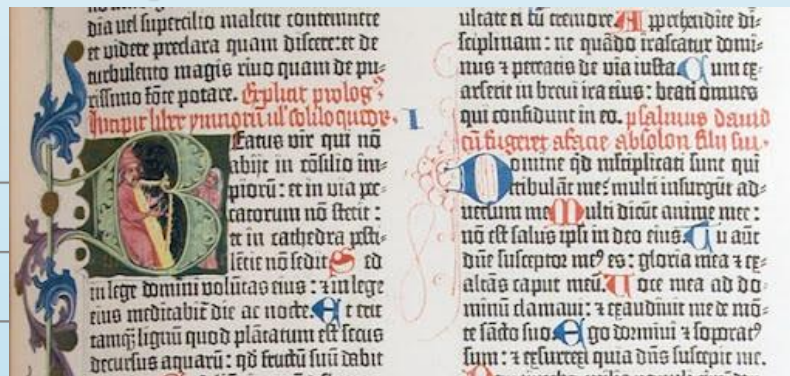 dia uel supercilio malent contemnere
et videre preclara quam discere: et de
turbulento magis riuo quam de pu-
rissimo fōte potare. Explicit prolog⁹,
Incipit liber ymnorū ul' soliloquiorū.
Beatus vir qui nō
abijt in cōsilio im-
piorū: et in via pec-
catorum nō stetit:
et in cathedra pesti-
lētie nō sedit Sed
in lege domini volūtas eius: ⁊ in lege
eius meditabit̄ die ac nocte. Et erit
tamq̄ lignū quod plātatum est secus
decursus aquarū: qd̄ fructū suū dabit
I
ulcate ei cū tremore. Apprehendite di-
sciplinam: ne quādo irascatur domi-
nus ⁊ pereatis de via iusta. Cum ex-
arserit in breui ira eius: beati omnes
qui confidunt in eo. psalmus dauid
cū fugeret a facie absolon filij sui.
Domine qd̄ mltiplicati sunt qui
tribulāt me: multi insurgūt ad-
uersum me. Multi dicūt anime mee:
nō est salus ipsi in deo eius. Tu aūt
dn̄e susceptor me⁹ es: gloria mea ⁊ ex-
altās caput meū. Voce mea ad do-
minū clamaui: ⁊ exaudiuit me de mō-
te sācto suo. Ego dormiui ⁊ soporat⁹
sum: ⁊ exsurrexi quia dn̄s suscepit me.